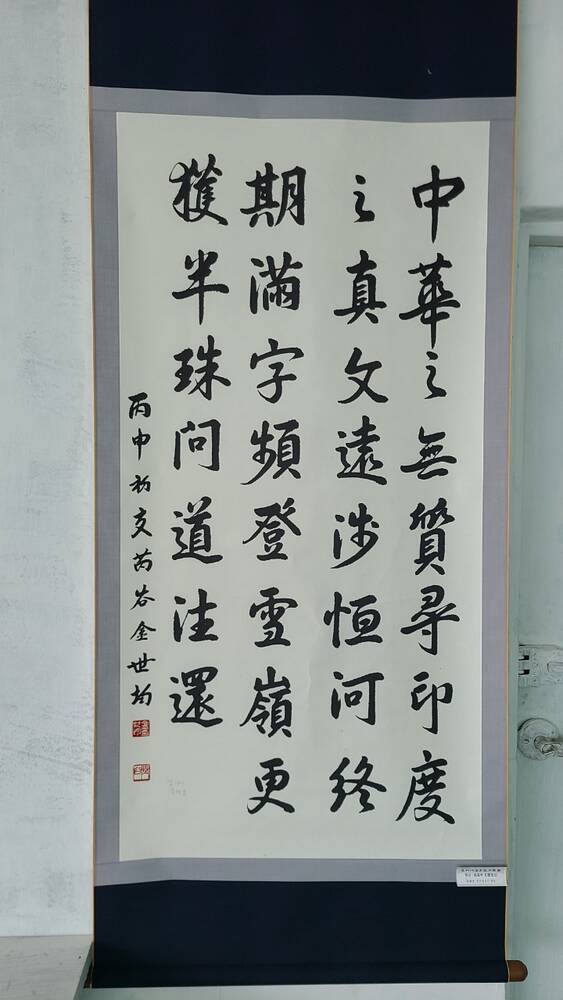 中華之無質尋印度
之真文遠涉恒河終
期滿字頻登雪嶺更
獲半珠問道往還
丙申初夏芮谷金世